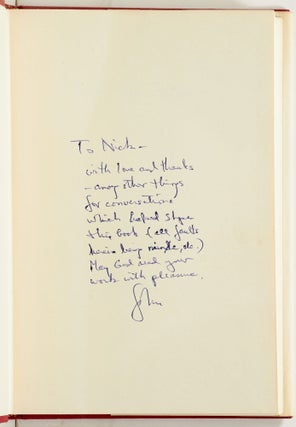 To Nick –
with love and thanks
– among other things
for conversations
which helped shape
this book (all faults
herein being mine, etc.)
May God and your
work with pleasure.
John